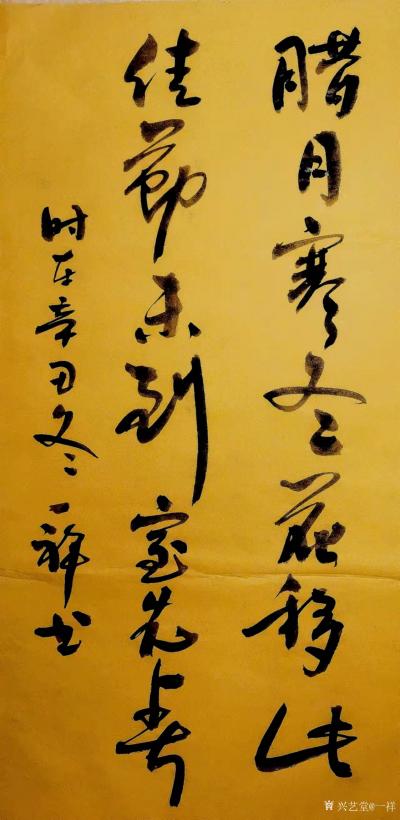 腊月寒冬花移此
佳节未到室先春
时在辛丑冬一祥书
兴艺堂@一祥